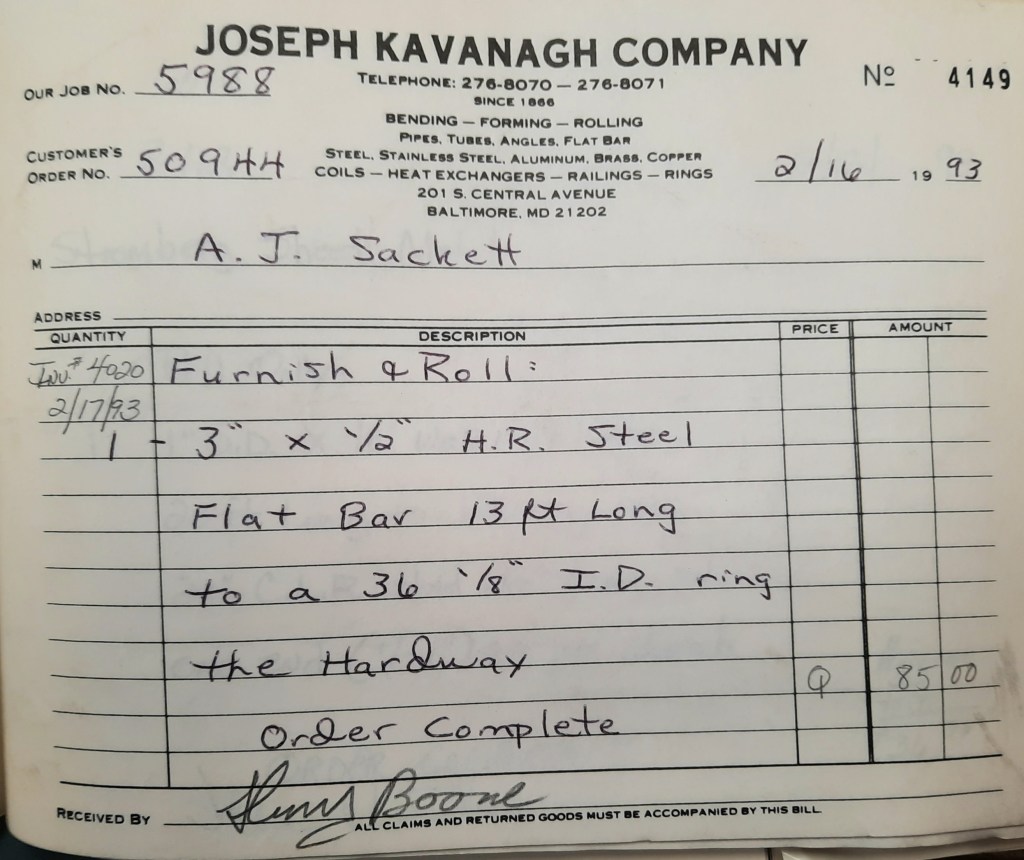 JOSEPH KAVANAGH COMPANY
OUR JOB NO. 5988
TELEPHONE: 276-8070 — 276-8071
Nº 4149
SINCE 1866
BENDING — FORMING — ROLLING
PIPES, TUBES, ANGLES, FLAT BAR
CUSTOMER'S ORDER NO. 50944
STEEL, STAINLESS STEEL, ALUMINUM, BRASS, COPPER
COILS — HEAT EXCHANGERS — RAILINGS — RINGS
2/16 19 93
201 S. CENTRAL AVENUE
BALTIMORE, MD 21202
M A. J. Sackett
ADDRESS
QUANTITY DESCRIPTION PRICE AMOUNT
Inv.# 4020 Furnish & Roll:
2/17/93
1 - 3" x 1/2" H.R. Steel
Flat Bar 13 ft Long
to a 36 1/8" I.D. ring
the Hardway
Q 85 00
Order Complete
RECEIVED BY Boone
ALL CLAIMS AND RETURNED GOODS MUST BE ACCOMPANIED BY THIS BILL